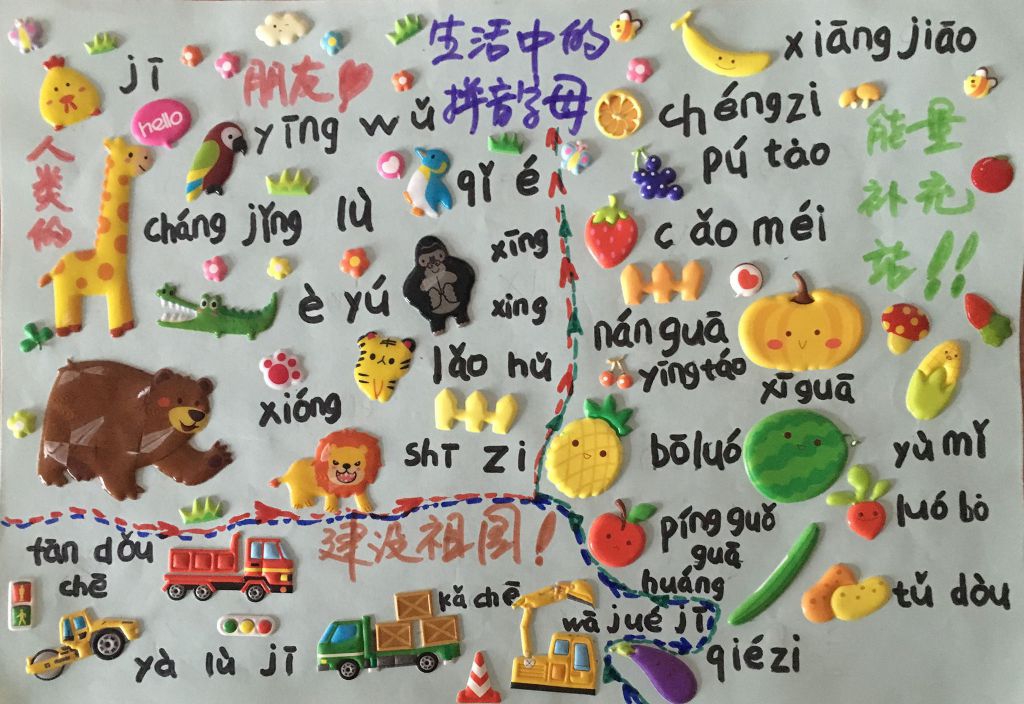 生活中的
拼音字母
朋友
人类的
jī
hello
yīng wǔ
cháng jǐng lù
qǐ é
xīng
xing
è yú
lǎo hǔ
xióng
shī zi
xiāng jiāo
chéngzi
pú tào
cǎo méi
能量
补充
站!!
nán guā
yīng táo
xī guā
bōluó
yù mǐ
píng guǒ
luó bo
guā
huáng
tǔ dòu
qiézi
建设祖国!
tān dǒu
chē
kǎ chē
wā jué jī
yà lù jī